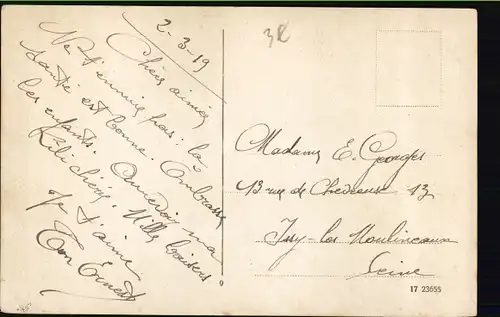 2-3-19
38
Chère aimée
Ne t'ennuie pas : la
santé est bonne. Embrasse
les enfants. ma
chérie. Mille baisers
Je t'aime
Ton Ernest
Madame E. Georges
13 rue de Chevreuse 13
Issy-les Moulineaux
Seine
9
17 23655